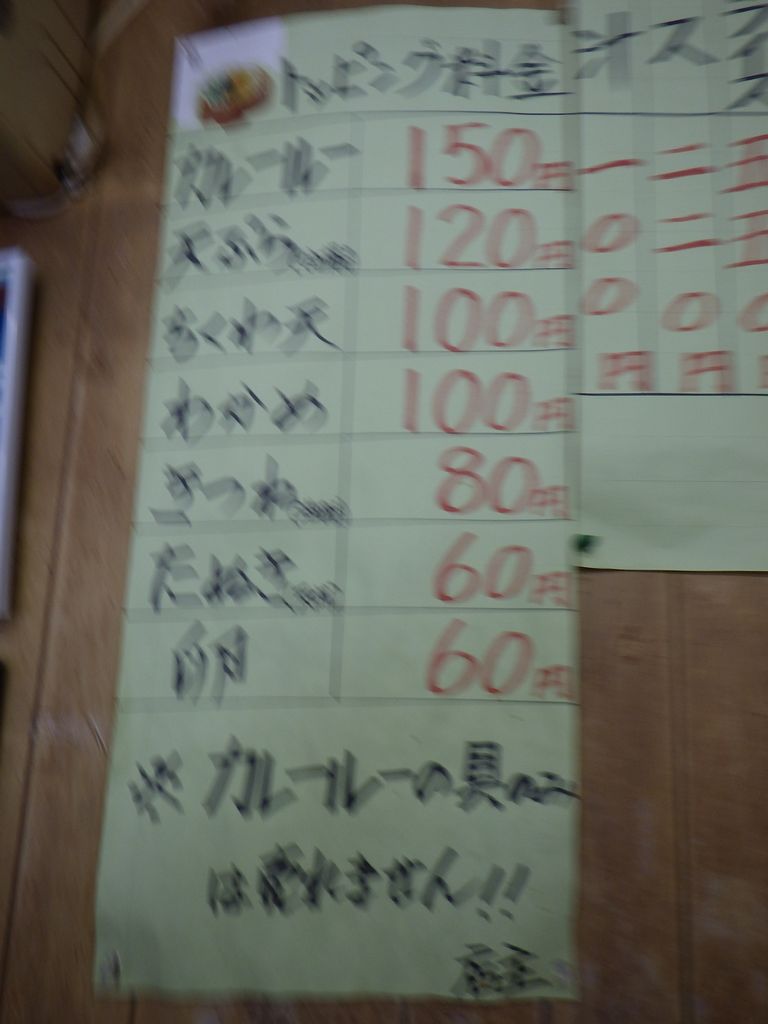 トッピング料金
カレールー 150円
天ぷら 120円
ちくわ天 100円
わかめ 100円
きつね 80円
たぬき 60円
卵 60円
※ カレールーの具のみ
は売れません!!
店主
一〇〇円
二二〇円